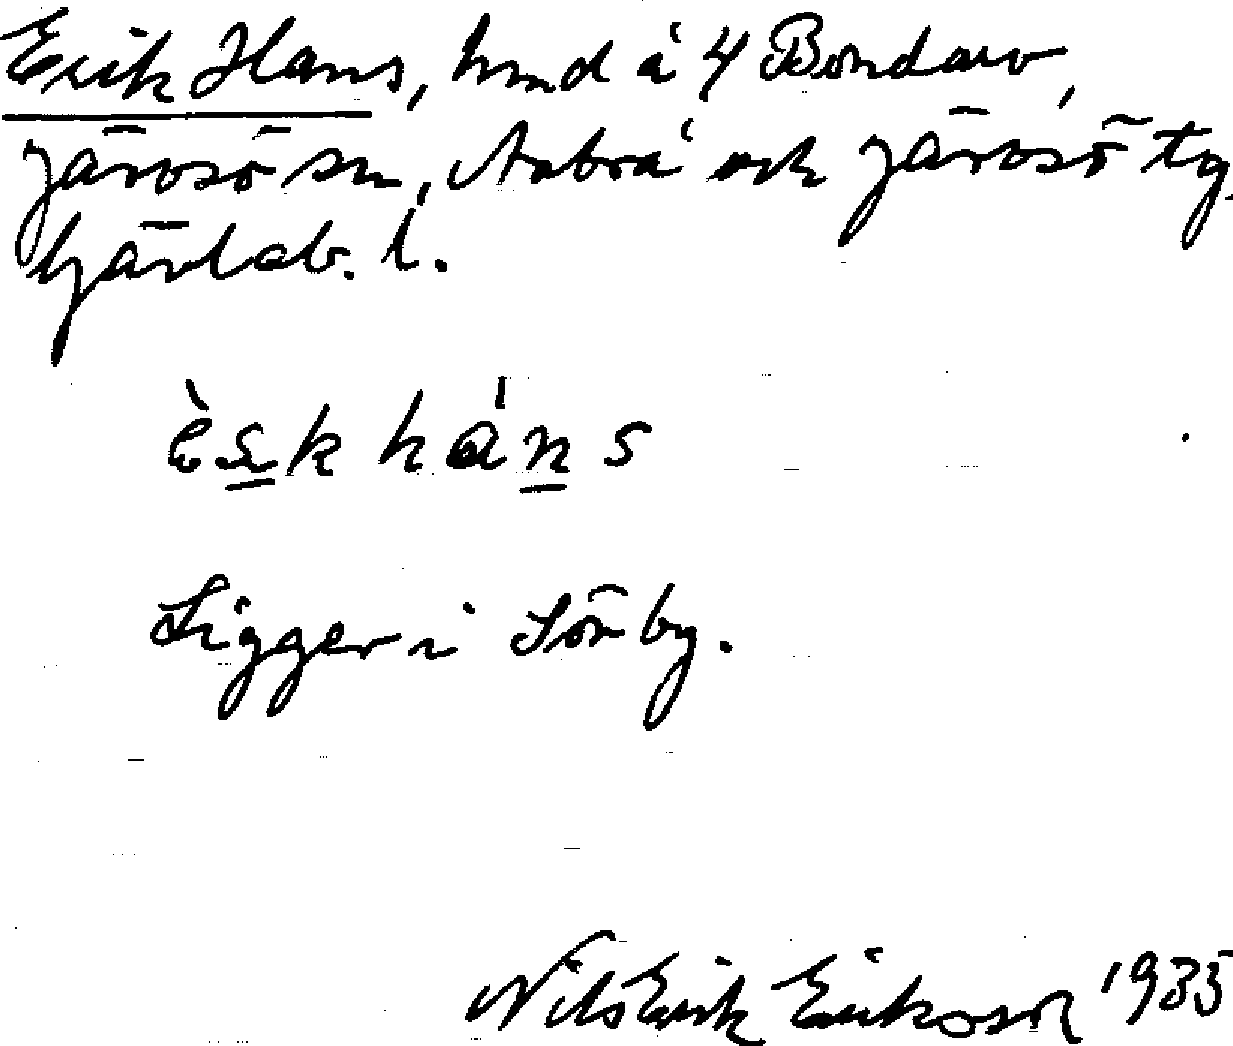 Erik Hans, hmd å 4 Bondarv,
Järvsö sn, Arbrå och Järvsö tg,
Gävleb. l.
èsk háns
Ligger i Sörby.
Nils Erik Eriksson 1935